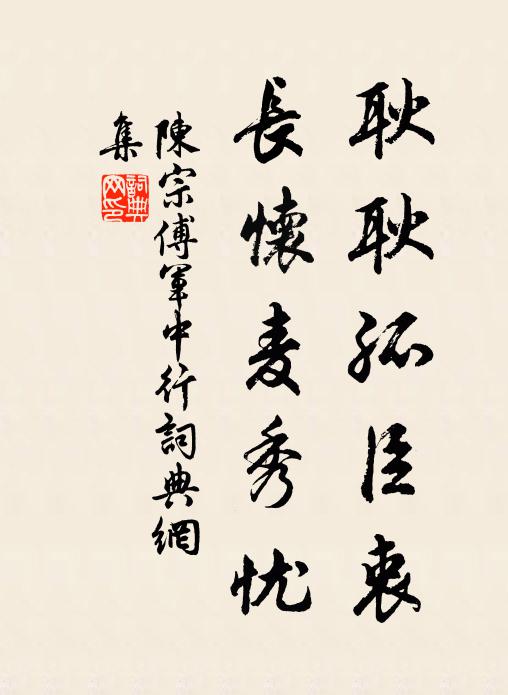 耿耿孤臣衷
長懷麦秀忧
陳宗傅軍中行詞典網
集
詞典网印